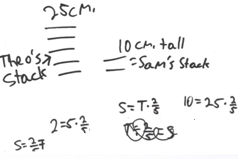 25cm.
Theo's
Stack
10cm. tall
= Sam's Stack
S = T · 2/5
10 = 25 · 2/5
2 = 5 · 2/5